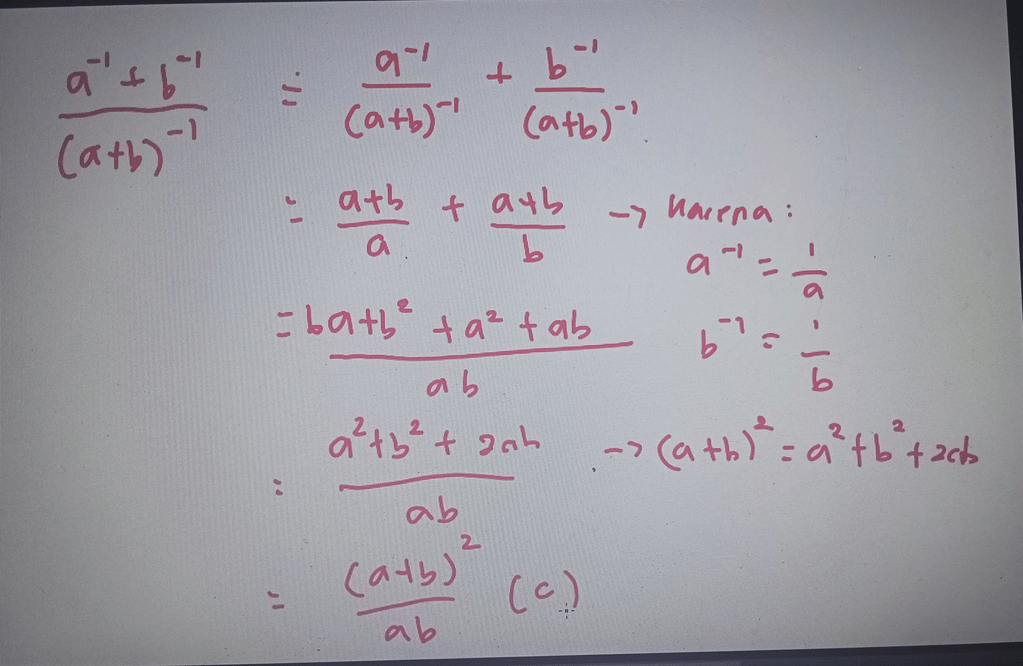 (a⁻¹ + b⁻¹)/(a+b)⁻¹ = a⁻¹/(a+b)⁻¹ + b⁻¹/(a+b)⁻¹
= (a+b)/a + (a+b)/b → karena :
a⁻¹ = 1/a
= (ba+b² + a² + ab)/ab
b⁻¹ = 1/b
= (a²+b² + 2ab)/ab → (a+b)² = a²+b²+2ab
= (a+b)²/ab (c)